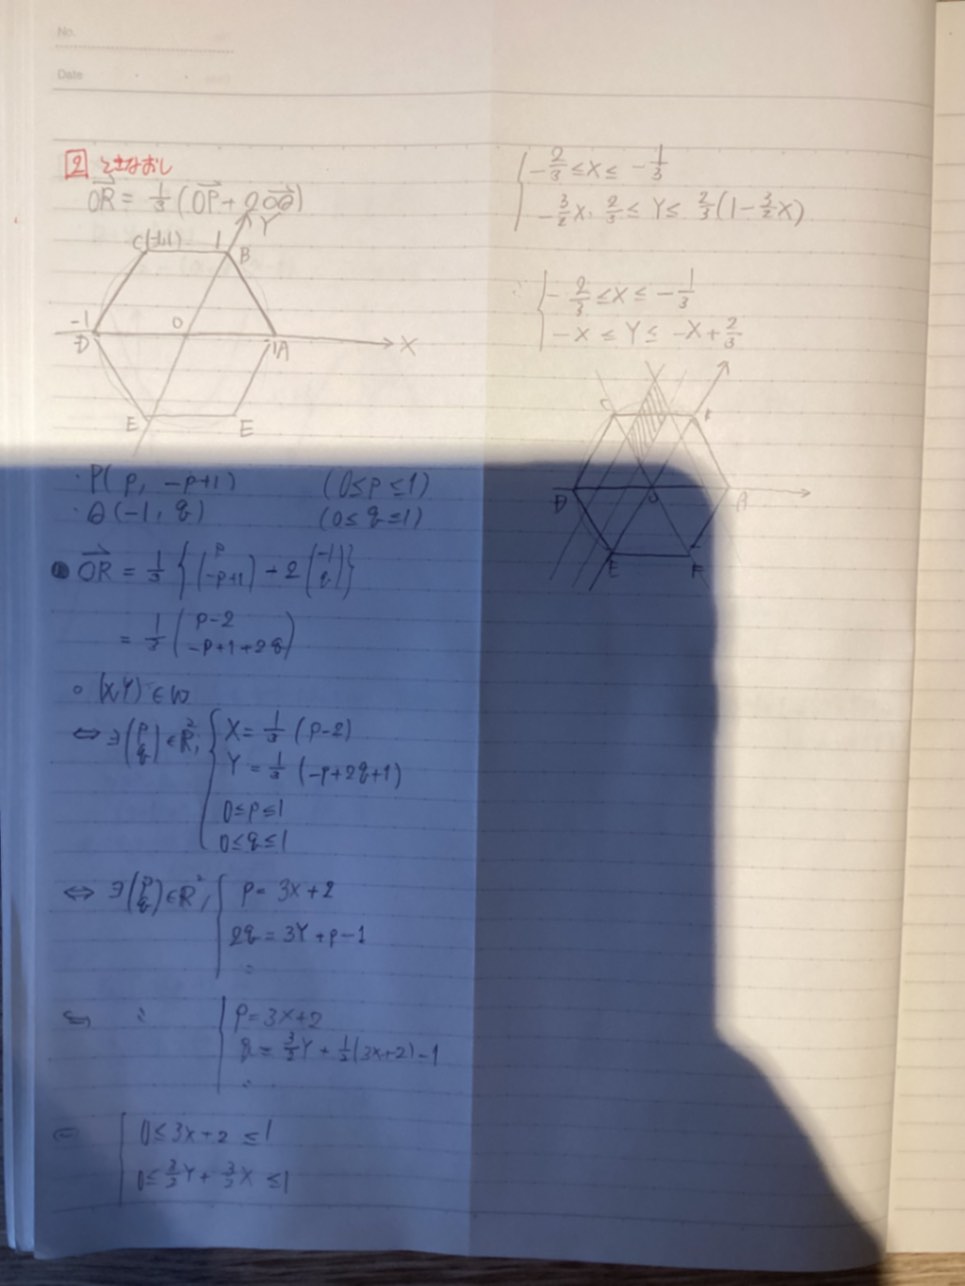 No.
Date
2 ときなおし
OR = 1/3 (OP + 2OQ)
Y
C(-1,1) 1 B
-1 O
D 1A X
E E
· P(p, -p+1) (0≤p≤1)
· Q(-1, q) (0≤q≤1)
OR = 1/3 { (p -p+1) + 2 (-1 q) }
= 1/3 (p-2 -p+1+2q)
○ (X,Y) ∈ W
⇔ ∃(p q) ∈ R², { X = 1/3 (p-2)
Y = 1/3 (-p+2q+1)
0≤p≤1
0≤q≤1
⇔ ∃(p q) ∈ R², { p = 3X+2
2q = 3Y+p-1
:
⇔ : { p = 3X+2
q = 3/2 Y + 1/2 (3X+2) - 1
:
⇔ { 0≤3X+2≤1
0≤ 3/2 Y + 3/2 X ≤1
{ -2/3 ≤X≤ -1/3
-3/2 X · 2/3 ≤ Y ≤ 2/3 (1 - 3/2 X)
∴ { -2/3 ≤X≤ -1/3
-X ≤ Y ≤ -X + 2/3
C
D O A
E F